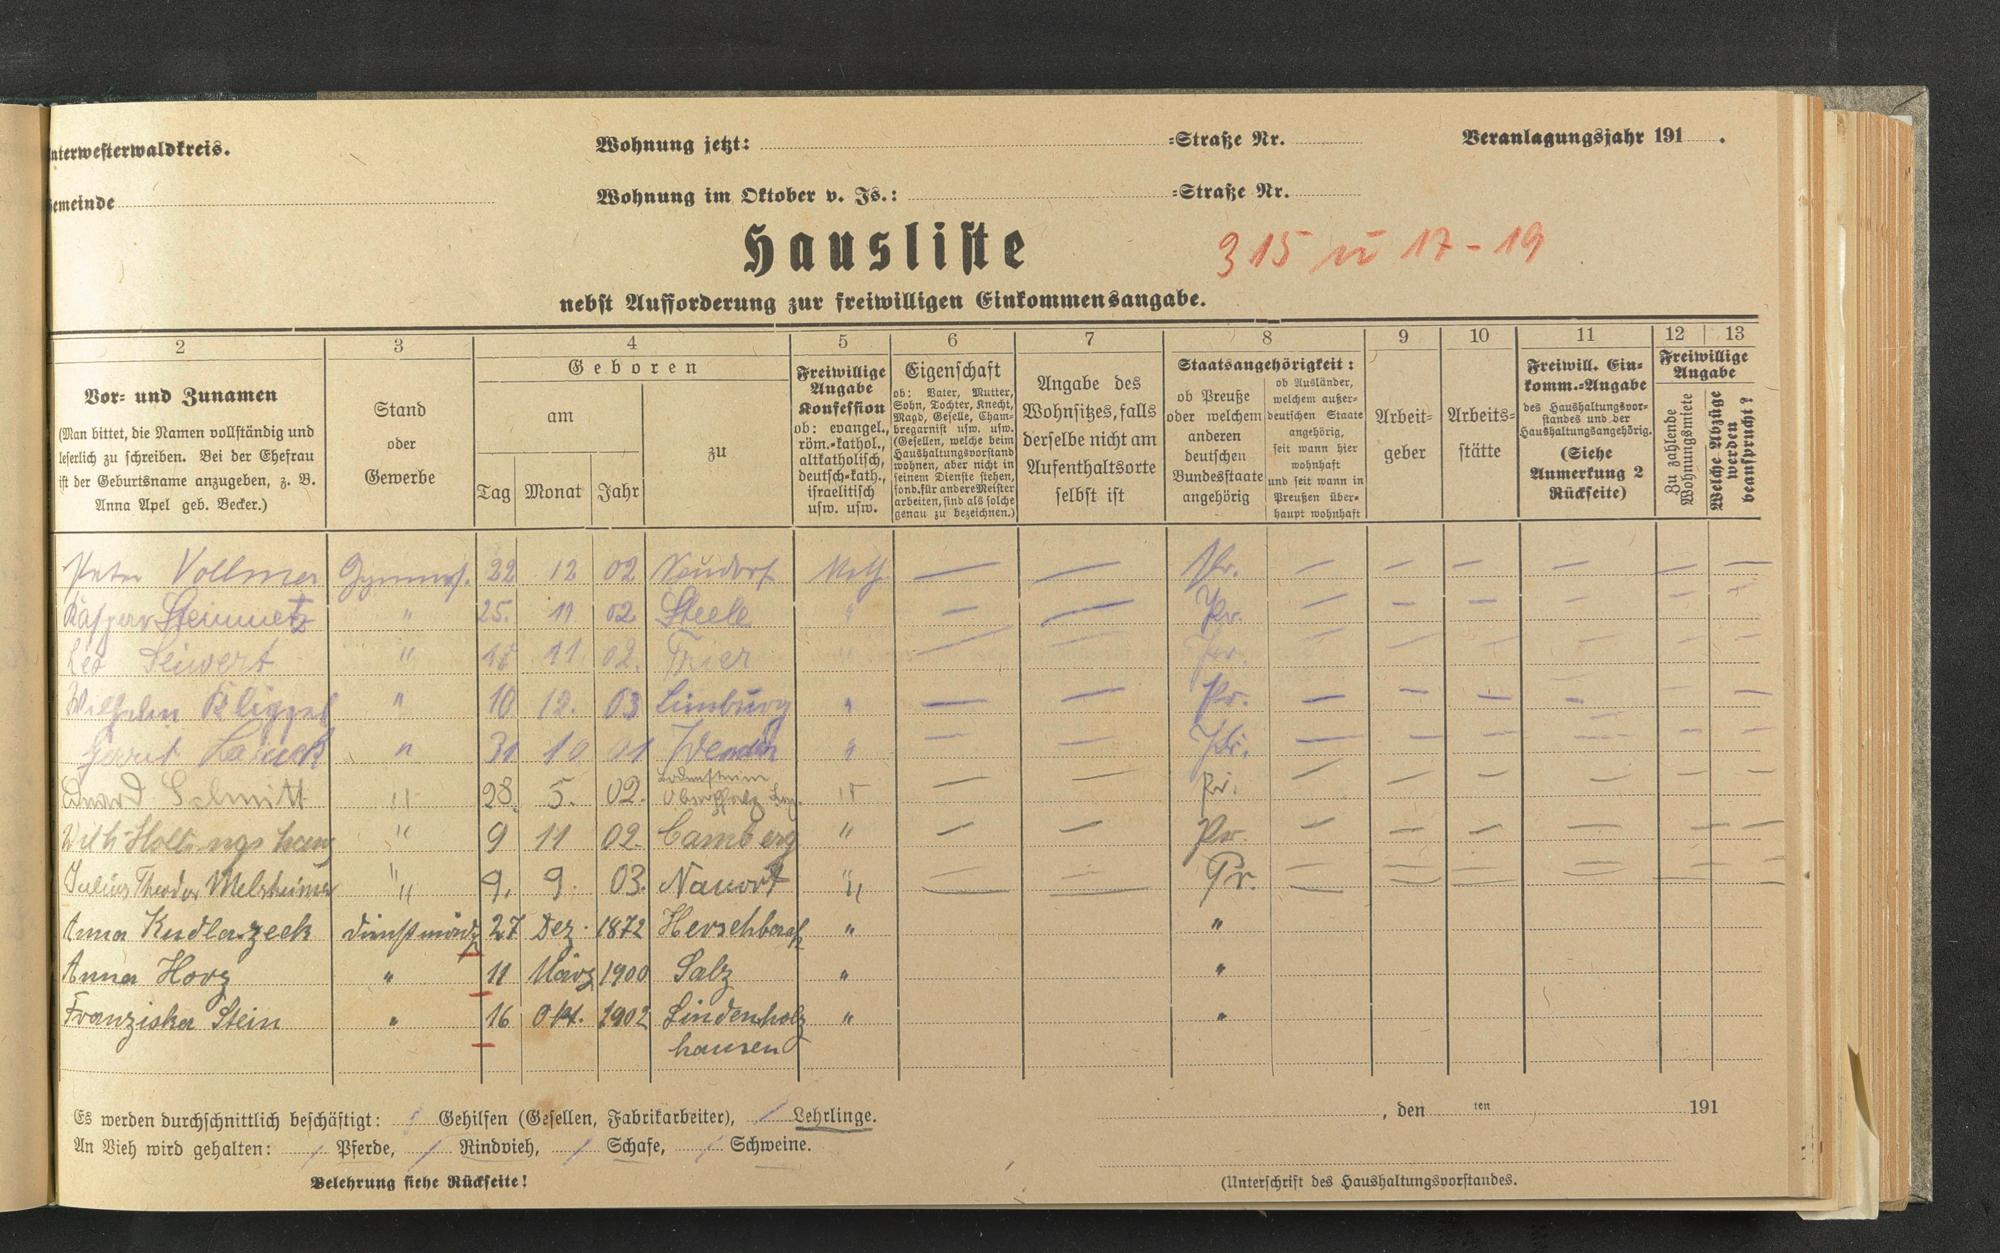 nterwesterwaldkreis.
Wohnung jetzt: =Straße Nr. Veranlagungsjahr 191 .
emeinde
Wohnung im Oktober v. Js.: =Straße Nr.
Hausliste
315 u 17-19
nebst Aufforderung zur freiwilligen Einkommensangabe.
2 3 4 5 6 7 8 9 10 11 12 13
Vor- und Zunamen
(Man bittet, die Namen vollständig und
leserlich zu schreiben. Bei der Ehefrau
ist der Geburtsname anzugeben, z. B.
Anna Apel geb. Becker.)
Stand
oder
Gewerbe
Geboren
am
Tag Monat Jahr
zu
Freiwillige
Angabe
Konfession
ob: evangel.,
röm.-kathol.,
altkatholisch,
deutsch-kath.,
israelitisch
usw. usw.
Eigenschaft
ob: Vater, Mutter,
Sohn, Tochter, Knecht,
Magd, Geselle, Cham-
bregarnist usw. usw.
(Gesellen, welche beim
Haushaltungsvorstand
wohnen, aber nicht in
seinem Dienste stehen,
sond. für andere Meister
arbeiten, sind als solche
genau zu bezeichnen.)
Angabe des
Wohnsitzes, falls
derselbe nicht am
Aufenthaltsorte
selbst ist
Staatsangehörigkeit:
ob Preuße
oder welchem
anderen
deutschen
Bundesstaate
angehörig
ob Ausländer,
welchem außer-
deutschen Staate
angehörig,
seit wann hier
wohnhaft
und seit wann in
Preußen über-
haupt wohnhaft
Arbeit-
geber
Arbeits-
stätte
Freiwill. Ein-
komm.-Angabe
des Haushaltungsvor-
standes und der
Haushaltungsangehörig.
(Siehe
Anmerkung 2
Rückseite)
Freiwillige
Angabe
Zu zahlende
Wohnungsmiete
Welche Abzüge
werden
beansprucht?
Peter Vollmer 22 12 02 Neudorf — — Pr. — — — — — —
Kaspar Steinmetz " 25. 11 02 Steele " — — Pr. — — — — — —
Leo Seiwert " 11 02. Trier " — — Pr. — — — — — —
Wilhelm Klippel " 10 12. 03 Limburg " — — Pr. — — — — — —
" 31 10 01 " — — Pr. — — — — — —
Schmitt " 28. 5. 02. " — — Pr. — — — — — —
" 9 11 02. Camberg " — — Pr. — — — — — —
Julius Theodor Melsheimer " 9. 9. 03. Nauort " — — Pr. — — — — — —
Anna Kudlazeck 27 Dez. 1872 Herschbach " "
Anna Horz " 11 März 1900 Salz " "
Franziska Stein " 16 Okt. 1902 Lindenholz " "
hausen
Es werden durchschnittlich beschäftigt: / Gehilfen (Gesellen, Fabrikarbeiter), / Lehrlinge.
, den ten 191
An Vieh wird gehalten: / Pferde, / Rindvieh, / Schafe, / Schweine.
Belehrung siehe Rückseite!
(Unterschrift des Haushaltungsvorstandes.